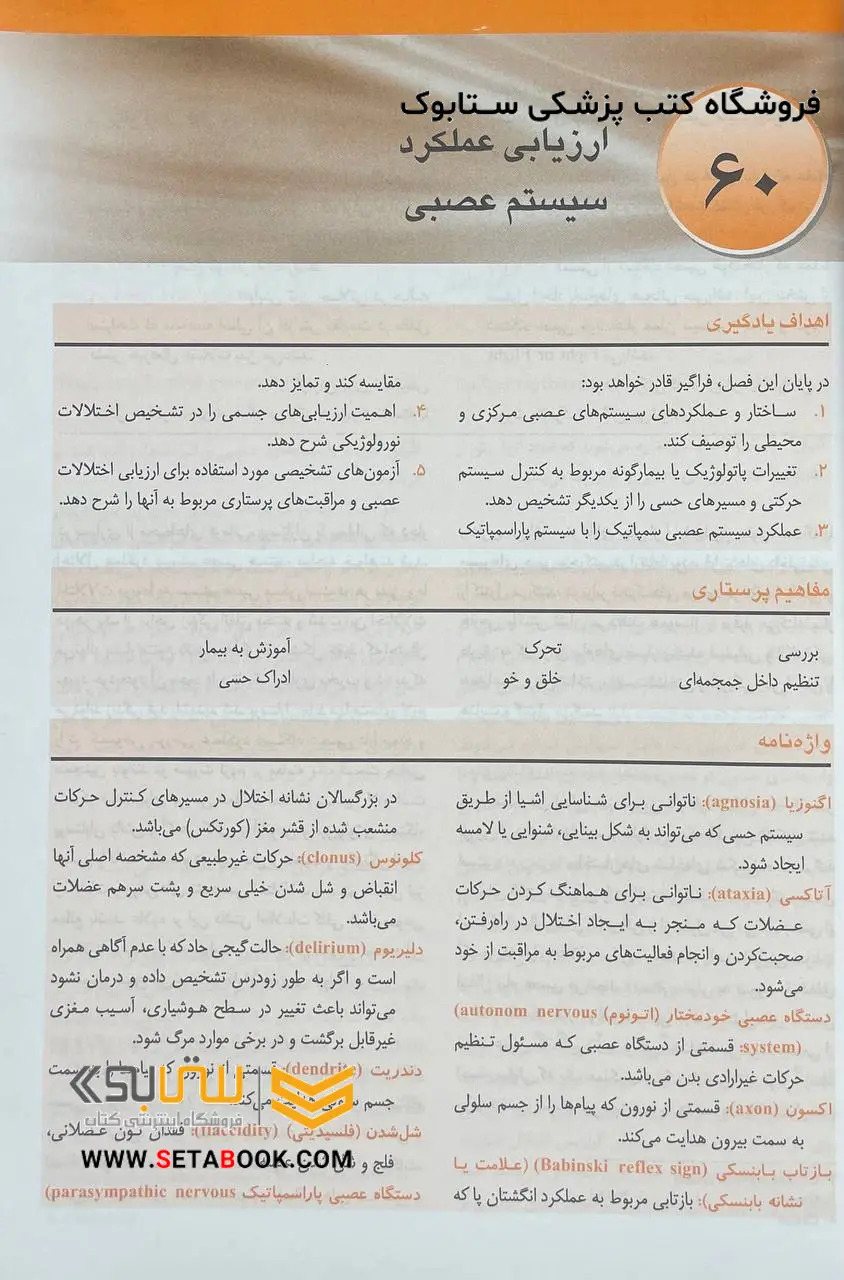 فروشگاه کتب پزشکی ستابوک
۶۰
ارزیابی عملکرد
سیستم عصبی
اهداف یادگیری
در پایان این فصل، فراگیر قادر خواهد بود:
۱. ساختار و عملکردهای سیستم‌های عصبی مرکزی و
محیطی را توصیف کند.
۲. تغییرات پاتولوژیک یا بیمارگونه مربوط به کنترل سیستم
حرکتی و مسیرهای حسی را از یکدیگر تشخیص دهد.
۳. عملکرد سیستم عصبی سمپاتیک را با سیستم پاراسمپاتیک
مقایسه کند و تمایز دهد.
۴. اهمیت ارزیابی‌های جسمی را در تشخیص اختلالات
نورولوژیکی شرح دهد.
۵. آزمون‌های تشخیصی مورد استفاده برای ارزیابی اختلالات
عصبی و مراقبت‌های پرستاری مربوط به آنها را شرح دهد.
مفاهیم پرستاری
بررسی
تنظیم داخل جمجمه‌ای
تحرک
خلق و خو
آموزش به بیمار
ادراک حسی
واژه‌نامه
اگنوزیا (agnosia): ناتوانی برای شناسایی اشیا از طریق
سیستم حسی که می‌تواند به شکل بینایی، شنوایی یا لامسه
ایجاد شود.
آتاکسی (ataxia): ناتوانی برای هماهنگ کردن حرکات
عضلات که منجر به ایجاد اختلال در راه‌رفتن،
صحبت‌کردن و انجام فعالیت‌های مربوط به مراقبت از خود
می‌شود.
دستگاه عصبی خودمختار (اتونوم) (autonom nervous
system): قسمتی از دستگاه عصبی که مسئول تنظیم
حرکات غیرارادی بدن می‌باشد.
اکسون (axon): قسمتی از نورون که پیام‌ها را از جسم سلولی
به سمت بیرون هدایت می‌کند.
بازتاب بابنسکی (Babinski reflex sign) (علامت یا
نشانه بابنسکی): بازتابی مربوط به عملکرد انگشتان پا که
در بزرگسالان نشانه اختلال در مسیرهای کنترل حرکات
منشعب شده از قشر مغز (کورتکس) می‌باشد.
کلونوس (clonus): حرکات غیرطبیعی که مشخصه اصلی آنها
انقباض و شل شدن خیلی سریع و پشت سرهم عضلات
می‌باشد.
دلیریوم (delirium): حالت گیجی حاد که با عدم آگاهی همراه
است و اگر به طور زودرس تشخیص داده و درمان نشود
می‌تواند باعث تغییر در سطح هوشیاری، آسیب مغزی
غیرقابل برگشت و در برخی موارد مرگ شود.
دندریت (dendrite): قسمتی از نورون که سمت
جسم می‌کند.
شل‌شدن (فلسیدیتی) (flaccidity): فقدان تون عضلانی،
فلج و
دستگاه عصبی پاراسمپاتیک (parasympathic nervous
ستابوک
فروشگاه اینترنتی کتاب
WWW.SETABOOK.COM